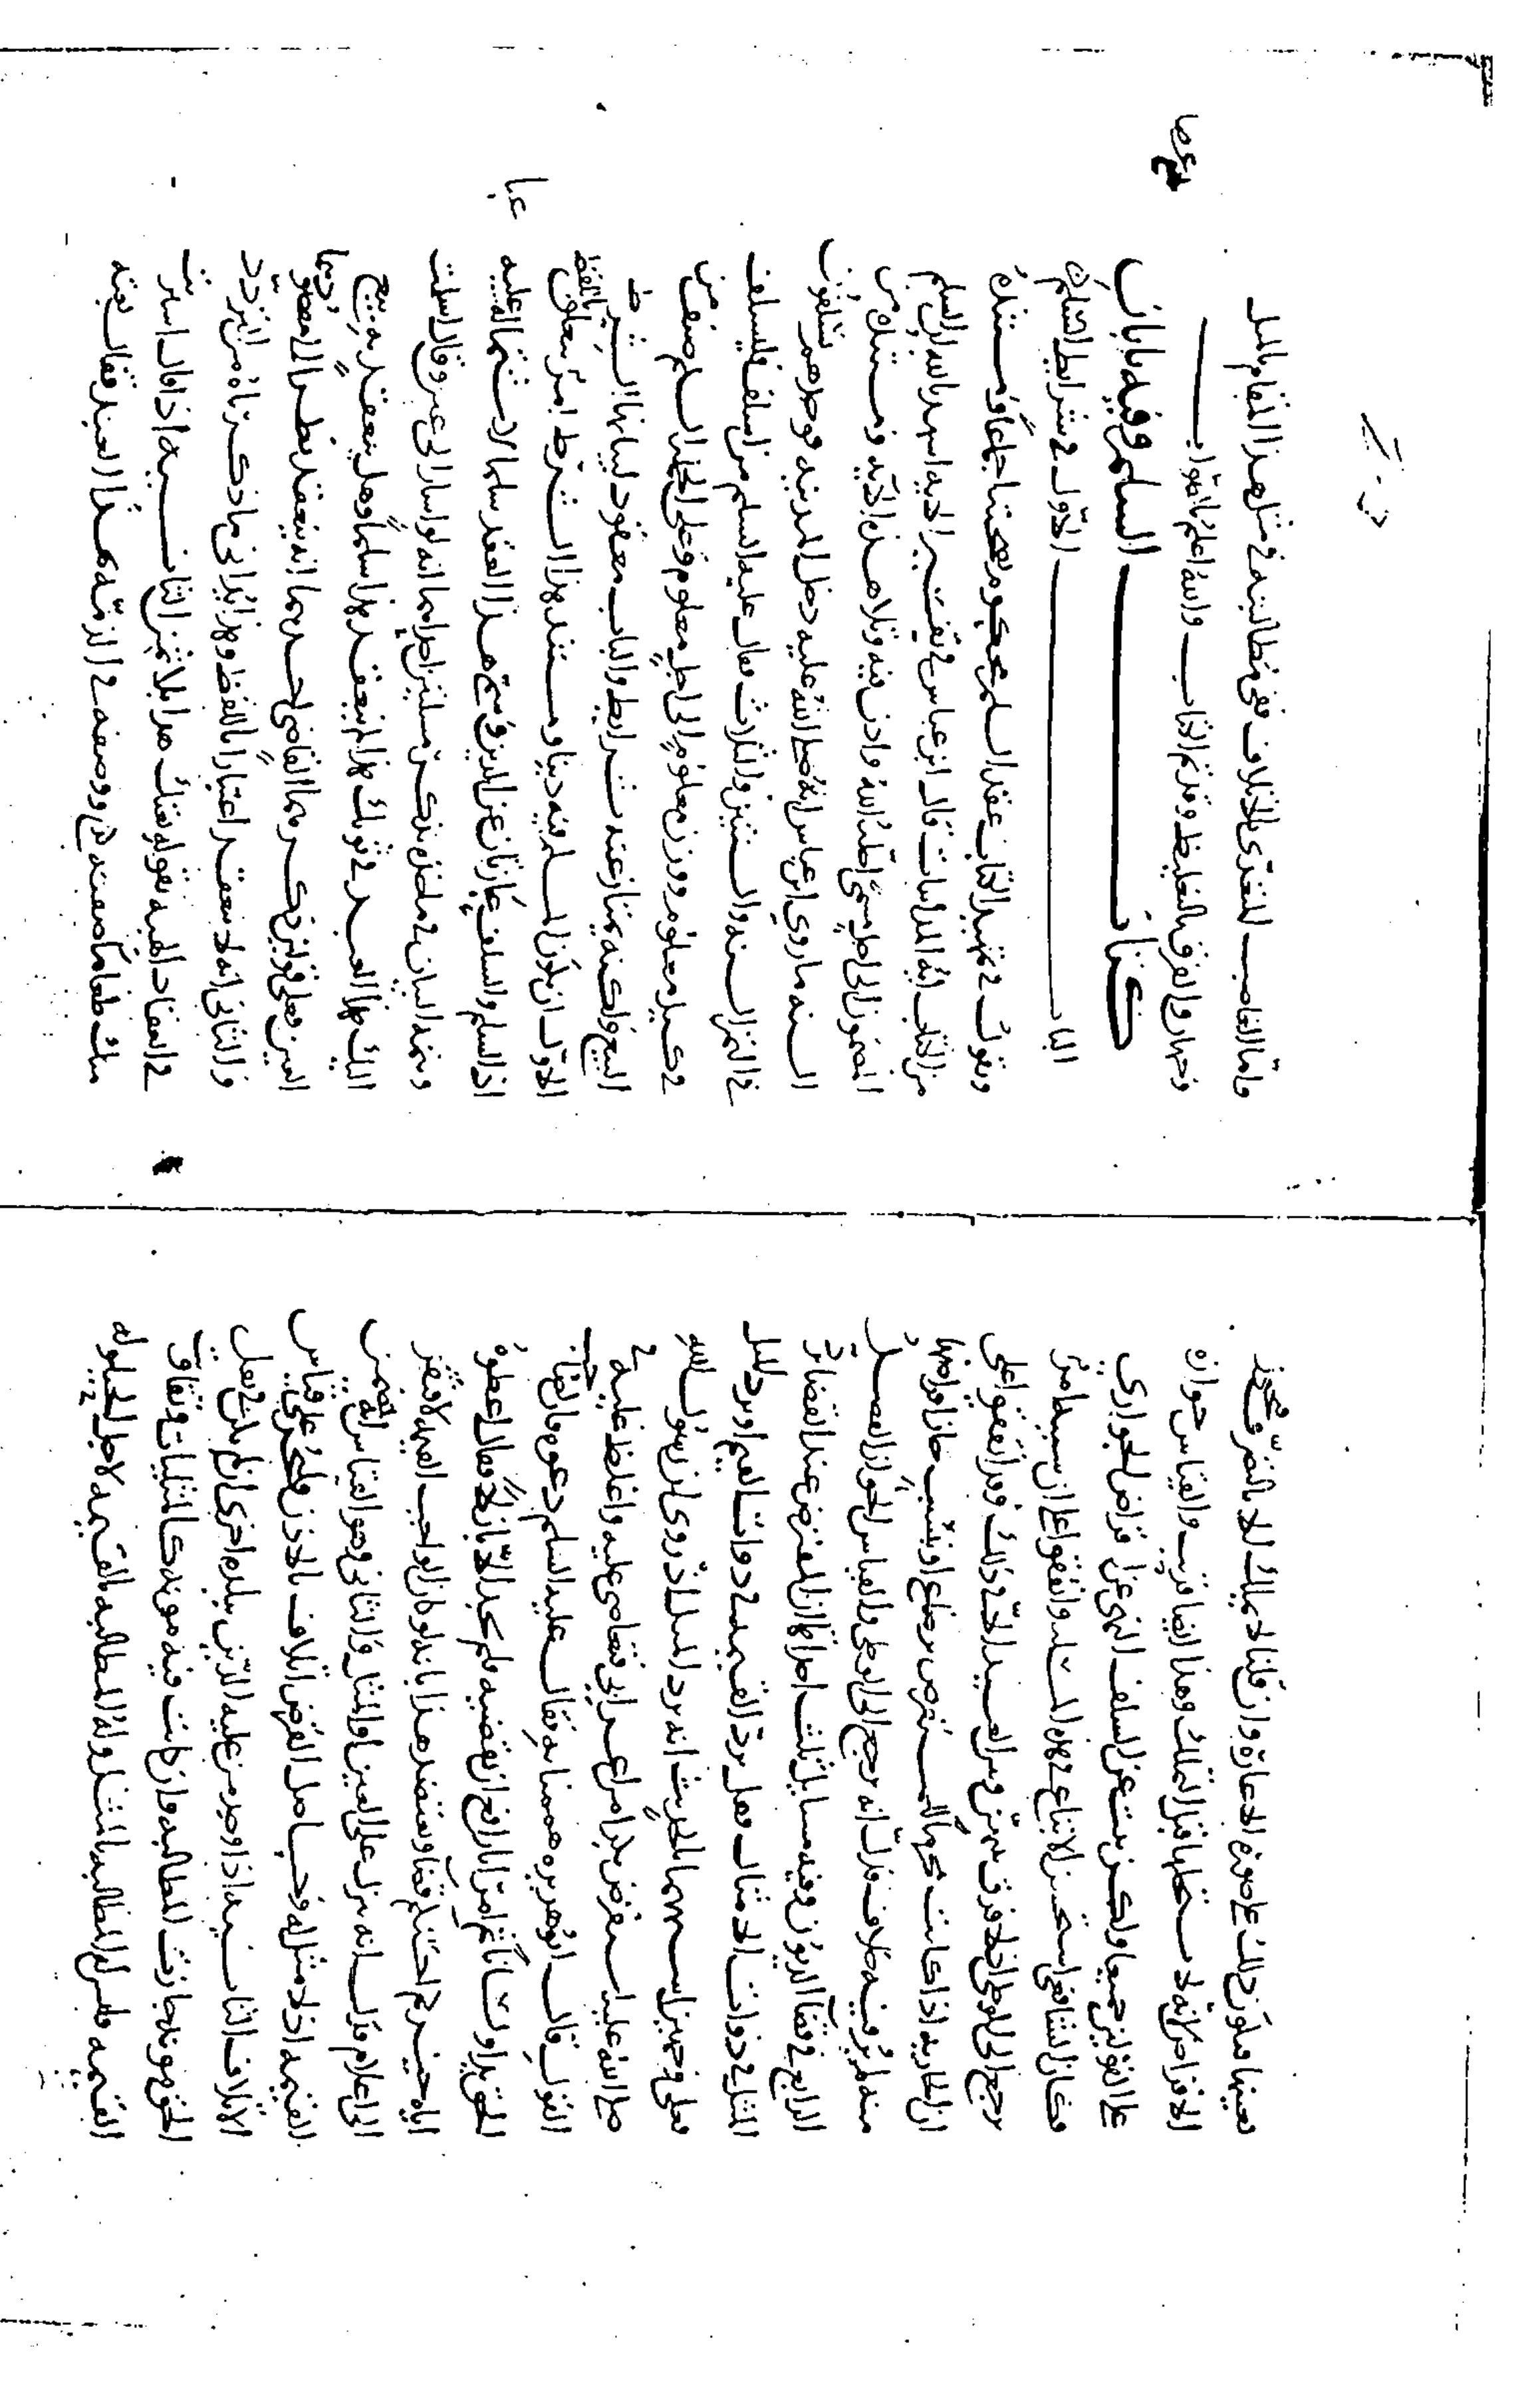 معينا فيكون ذلك على صورة الاعارة وان قلنا لا يملك الا بالتصرف فيجوز
الاقراض لانه لا يستحلها قبل التملك وهذا ايضا قريب والقياس جوازه
على القولين جميعا ولكن ثبت عن السلف النهي عن اقراض الجواري
فكان الشافعي استحسن الاتباع في هذه المسئلة واتفقوا على ان سببه امر
يرجع الى الوطي اذ لا فرق بينهن وبين العبيد الا في ذلك وقد اتفقوا على
ان الجارية اذا كانت محرما للمستقرض برضاع او نسب جاز اقراضها
منه فلم فيه خلاف فدل انه يرجع الى الوطي والقياس الجواز الفصل
الرابع في قضا الديون وفيه مسايل ثلث احداها ان المقترض عند القضا يرد
المثل في ذوات الامثال وهل يرد القيمة في ذوات القيم او يرد المثل
فعلى وجهين الحديث انه يرد المثل اذ روي ان رسول الله
صلى الله عليه استقرض بكرا من اعرابي فتقاضى عليه واغلظ عليه في
القول قال ابو هريره هممنا به فقال عليه السلم دعوه فان لصاحب
الحق يدا ولسانا ثم امر ابا رافع ان يقضيه فلم يجد الا بازلا فقال اعطوه
اياه خيركم احسنكم قضا ويعتضد هذا بانه لو كان الواجب القيمة لافتقر
الى اعلام فدل انه ينزل على العين او المثل والثاني وهو القياس انه يضمن
القيمة اذ لا مثل له اصل القرض اتلاف بالاذن فلتجر على قياس
الاتلاف الثانيه اذا وجد من عليه الدين ببلدة اخرى ان لم يكن في نقل
الحق مونة جازت المطالبة وان كانت فيه مونة كالمثليات وتفاوت
القيمة فليس له المطالبة بالمثل وله المطالبة بالقيمة لاجل الحيلولة
واما الغاصب المتعدي بالاتلاف ففي مطالبته في مثل هذا المقام بالمثل
وجهان والفرق بالتغليظ وقد تم الكتاب والله اعلم بالصواب
كتاب السلم وفيه بابان
الباب الاول في شرايط السلم
ونقول في تمهيد الكتاب عقد السلم صحيح اجماعا ومستنده
من الكتاب اية المداينات قال ابن عباس في تفسير الاية اشهد بالله ان السلم
المضمون الى اجل مسمى احله الله واذن فيه وتلا هذه الاية ومستنده من
السنه ما روى ابن عباس انه صلى الله عليه دخل المدينه فوجدهم يسلفون
في الثمر السنه والسنتين والثلاث فقال عليه السلم من اسلف فليسلف
في كيل معلوم ووزن معلوم الى اجل معلوم وعلى الجملة السلم صنف من
البيع ولكنه يمتاز عنه بشرايط والباب معقود لبيانها الشرط
الاول ان يكون المسلم فيه دينا ومستند هذا الشرط امر يتعلق باللفظ
اذ السلم والسلف عبارتان عن الدين وسمي هذا العقد سلما لاشتماله عليه
وعند البيان في ملخصه نذكر مسلتين احداهما انه لو اشار الى عبد وقال اسلمت
اليك هذا العبد في ثوبك هذا لم ينعقد هذا سلما وهل ينعقد به بيع
العين فعلى قولين ذكرهما القاضي احدهما انه ينعقد نظرا الى المقصود
والثاني انه لا ينعقد اعتبارا بالفظ وهذا يداني ما ذكرناه من التردد
في انعقاد الهبه بقوله بعتك هذا بلا ثمن الثانيه اذا قال اشتريت
منك طعاما صفته كذا ووصفه في الذمه بهذا العبد فقال بعته